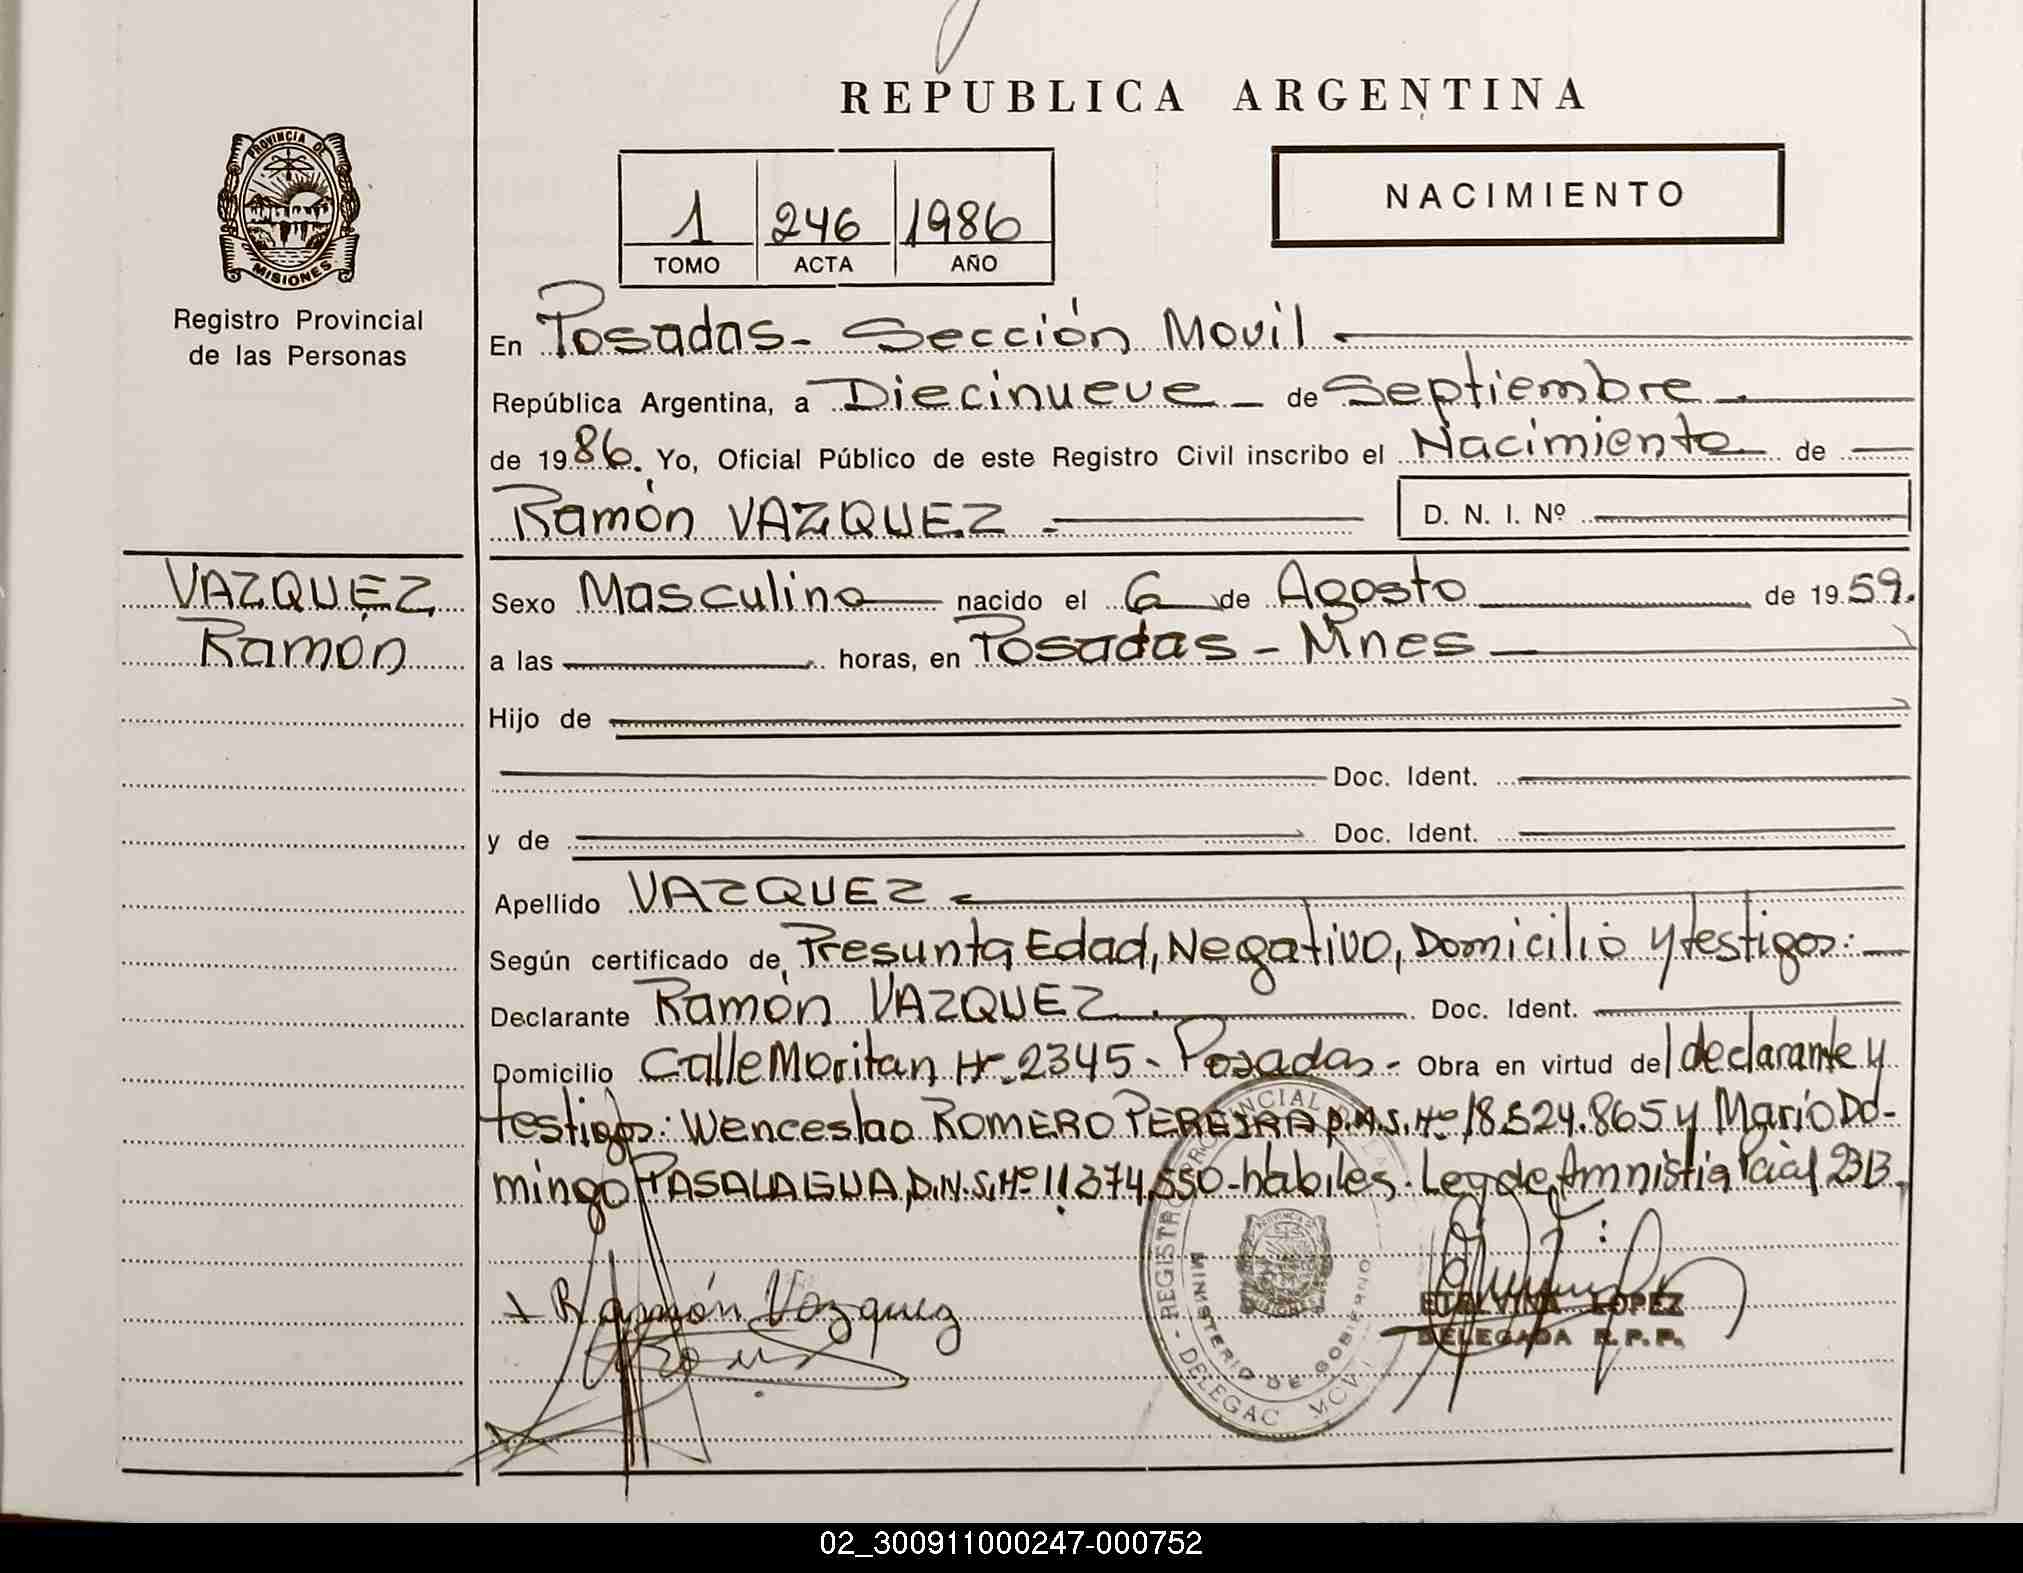 REPUBLICA ARGENTINA
PROVINCIA DE
MISIONES
Registro Provincial
de las Personas
1 246 1986
TOMO ACTA AÑO
NACIMIENTO
En Posadas - Sección Movil
República Argentina, a Diecinueve de Septiembre
de 1986. Yo, Oficial Público de este Registro Civil inscribo el Nacimiento de
Ramón VAZQUEZ D. N. I. Nº
VAZQUEZ
Ramón
Sexo Masculino nacido el 6 de Agosto de 1959.
a las horas, en Posadas - Mnes
Hijo de
Doc. Ident.
y de Doc. Ident.
Apellido VAZQUEZ
Según certificado de Presunta Edad, Negativo, Domicilio y testigos:
Declarante Ramón VAZQUEZ Doc. Ident.
Domicilio Calle Moritan Nº 2345 - Posadas - Obra en virtud del declarante y
testigos: Wenceslao ROMERO PEREIRA D.N.I. Nº 18.524.865 y Mario Do-
mingo PASALAGUA, D.N.I. Nº 11.374.550 - habiles. Ley de Amnistia Pcial 2313.
Ramón Vazquez
ETELVINA LOPEZ
DELEGADA R.P.P.
MINISTERIO DE GOBIERNO
02_300911000247-000752